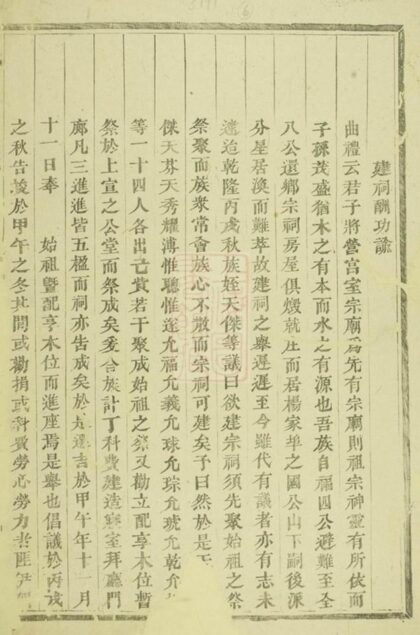 建祠酬功
曲禮云君子將營宮室宗廟為先有宗廟則祖宗神靈有所依而
子孫茂盛猶木之有本而水之有源也吾族自福四公避難至全
八公還鄉宗祠房屋俱燬就庄而居楊家埠之國公山下嗣後派
分星居渙而難萃故建祠之舉遲遲至今雖代有議者亦有志未
遂迨乾隆丙戌秋族姪天傑等議曰欲建宗祠須先聚始祖之祭
祭聚而族衆常會族心不散而宗祠可建矣予曰然於是
傑天芬天秀耀溥惟聰惟達允福允義允球允琮允琥允乾介
等一十四人各出亡貲若干聚成始祖之祭又勸立配享木位暫
祭於上宣之公堂而祭成矣爰合族計丁科費建造寢室拜廳門
廊凡三進進皆五楹而祠亦告成矣於是選吉於甲午年十一月
十一日奉 始祖暨配享木位而進座焉是舉也倡議於丙戌
之秋告竣於甲午之冬其間或勸捐或科費勞心勞力者匪